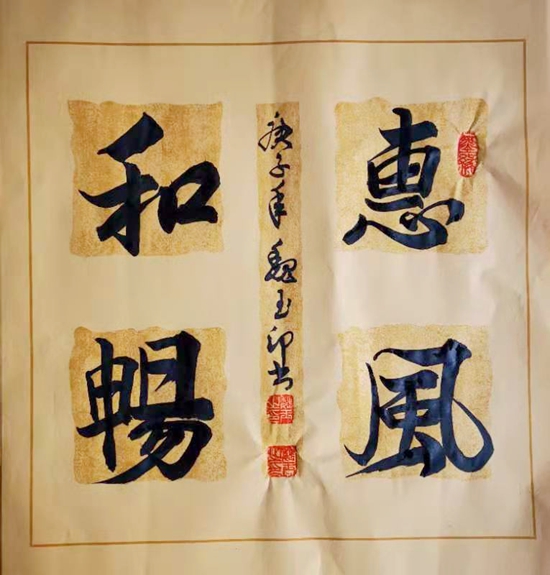 惠風
和暢
庚子年魏玉印书